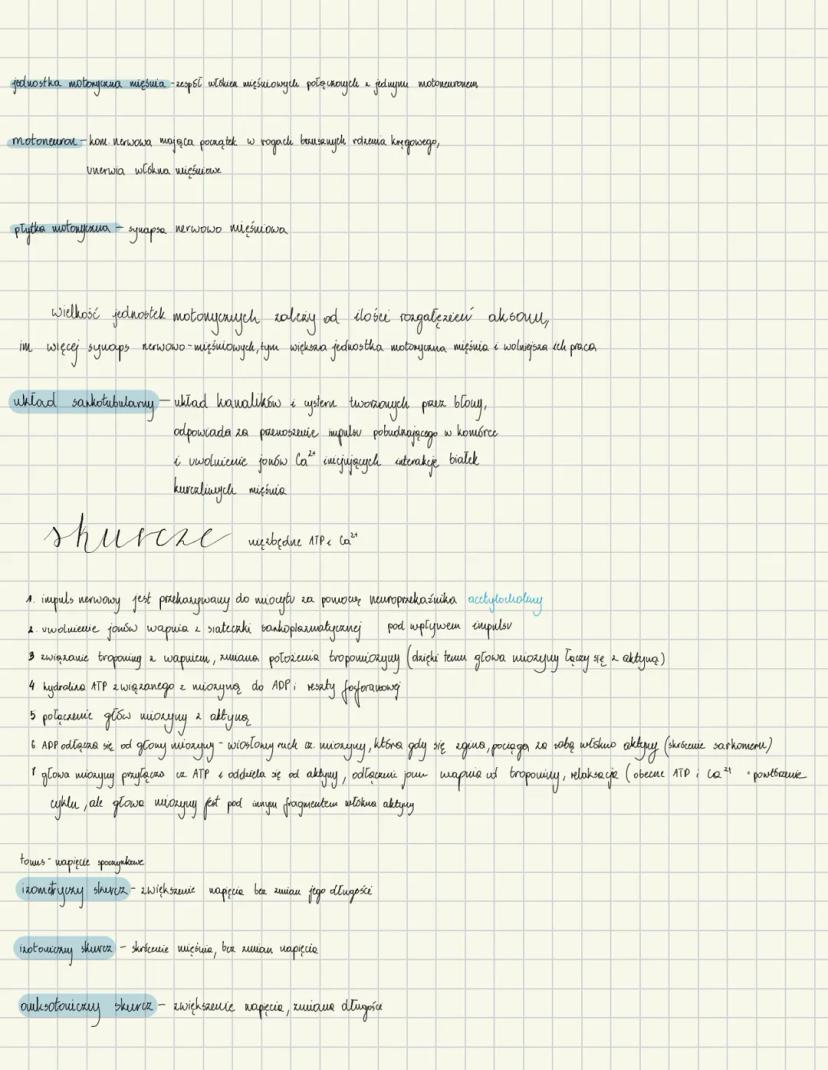 jednostka motoryczna mięśnia - zespół włókien mięśniowych połączonych z jednym motoneuronem
motoneuron - kom. nerwowa mająca początek w rogach brzusznych rdzenia kręgowego,
unerwia włókna mięśniowe
płytka motoryczna - synapsa nerwowo mięśniowa
wielkość jednostek motorycznych zależy od ilości rozgałęzień aksonu,
im więcej synaps nerwowo-mięśniowych, tym większa jednostka motoryczna mięśnia i wolniejsza ich praca
układ sarkotubularny - układ kanalików i cystern tworzonych przez błony,
odpowiada za przenoszenie impulsu pobudzającego w komórce
i uwolnienie jonów Ca²⁺ inicjujących interakcje białek
kurczliwych mięśnia
skurcze niezbędne ATP i Ca²⁺
1. impuls nerwowy jest przekazywany do miocytu za pomocą neuroprzekaźnika acetylocholiny
2. uwolnienie jonów wapnia z siateczki sarkoplazmatycznej pod wpływem impulsu
3 związanie troponiny z wapniem, zmiana położenia tropomiozyny (dzięki temu głowa miozyny łączy się z aktyną)
4 hydroliza ATP związanego z miozyną do ADP i reszty fosforanowej
5 połączenie głów miozyny z aktyną
6. ADP odłącza się od głowy miozyny - wiosłowy ruch cz. miozyny, która gdy się zgina, pociąga za sobą włókno aktyny (skrócenie sarkomeru)
7 głowa miozyny przyłącza cz ATP i oddziela się od aktyny, odłączenie jonu wapnia od troponiny, relaksacja (obecne ATP i Ca²⁺ - powtórzenie
cyklu, ale głowa miozyny jest pod innym fragmentem włókna aktyny
tonus - napięcie spoczynkowe
izometryczny skurcz - zwiększenie napięcia bez zmian jego długości
izotoniczny skurcz - skrócenie mięśnia, bez zmian napięcia
auksotoniczny skurcz - zwiększenie napięcia, zmiana długości